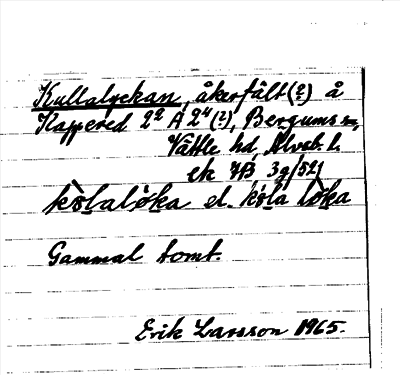 Kullalyckan, åkerfält(?) å
Kappered 2² A 2⁴(?), Bergums sn,
Vättle hd, Älvsb. l.
ek 7B 3g/52)
kòlalo̊ka el. kola lo̊ka
Gammal tomt.
Erik Larsson 1965.